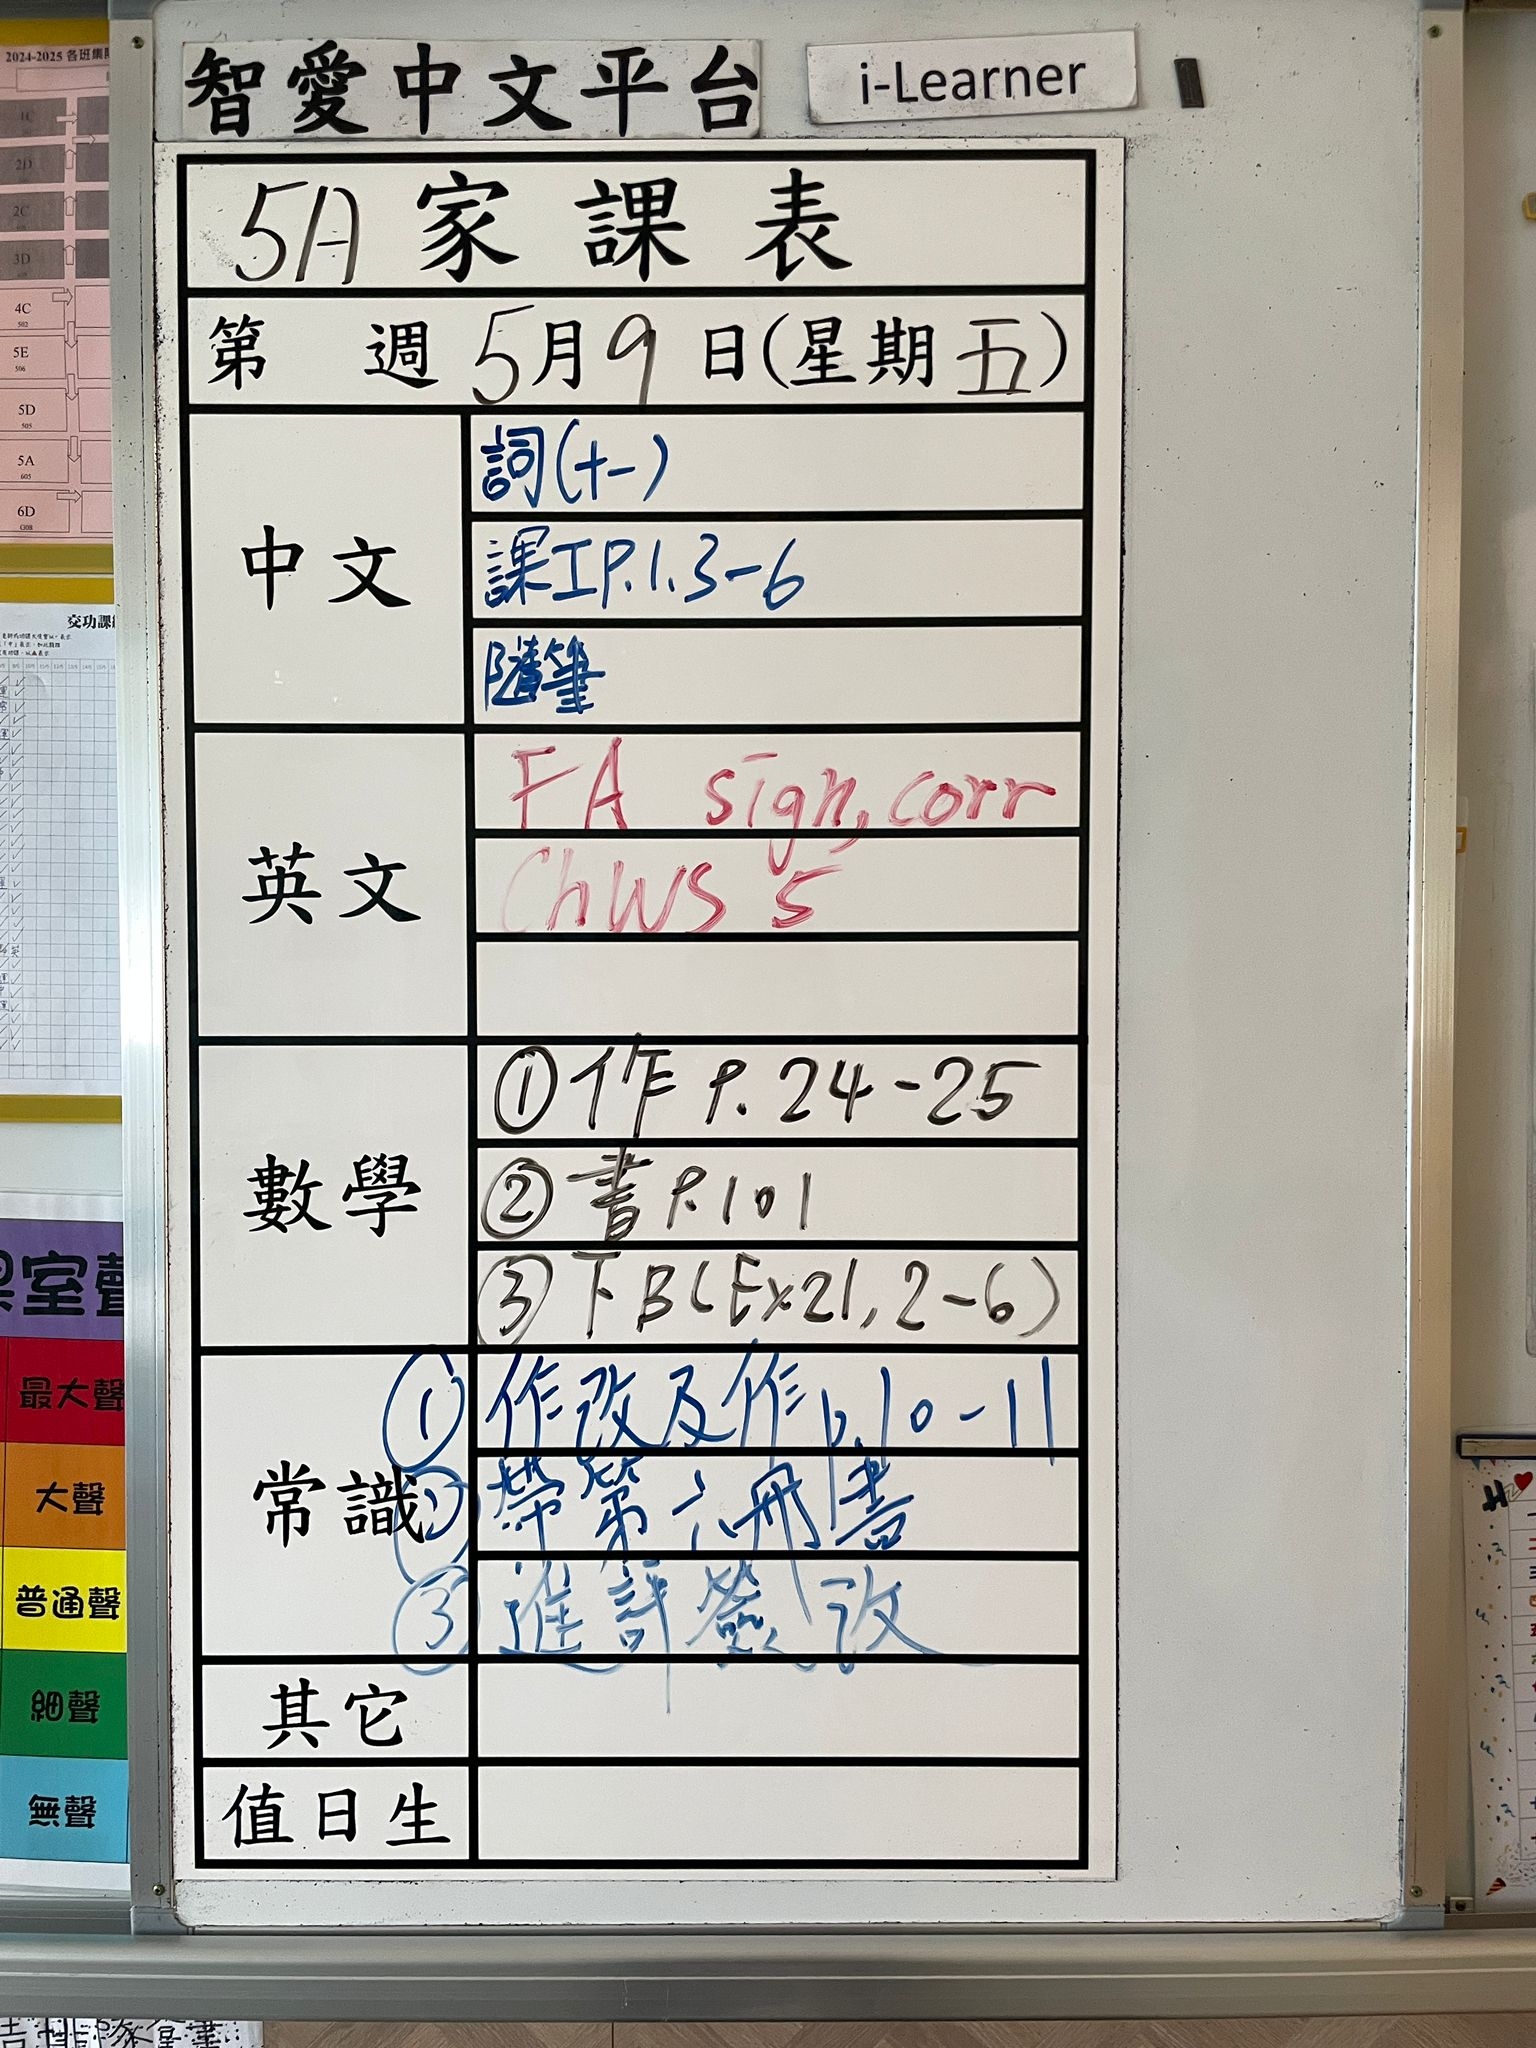 智愛中文平台 i-Learner
5A 家課表
第 週 5月9日(星期五)
中文
詞(十一)
課工P.1.3-6
隨筆
英文
FA sign, corr
ChWS 5
數學
①作 P. 24-25
②書 P.101
③下B(Ex21, 2-6)
常識
①作改及作p.10-11
②帶第六冊書
③進評簽改
其它
值日生
2024-2025 各班集
1C
2D
2C
3D
4C
502
5E
506
5D
505
5A
605
6D
G08
交功課
室聲
最大聲
大聲
普通聲
細聲
無聲